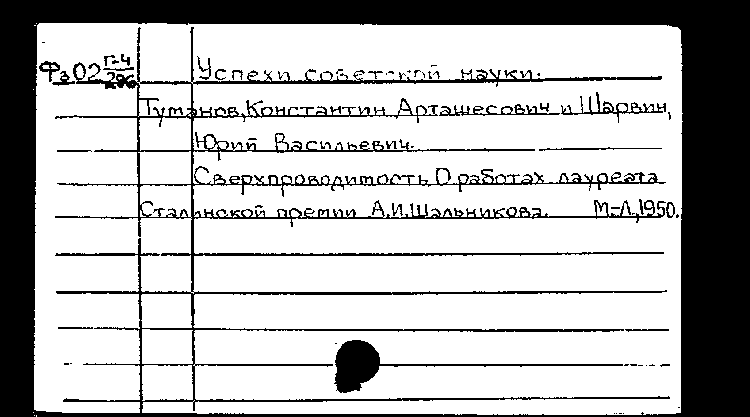 Фз02 Г-4/296 Успехи советской науки.
Туманов, Константин Арташесович и Шарвин,
Юрий Васильевич.
Сверхпроводимость. О работах лауреата
Сталинской премии А.И.Шальникова. М.-Л., 1950.